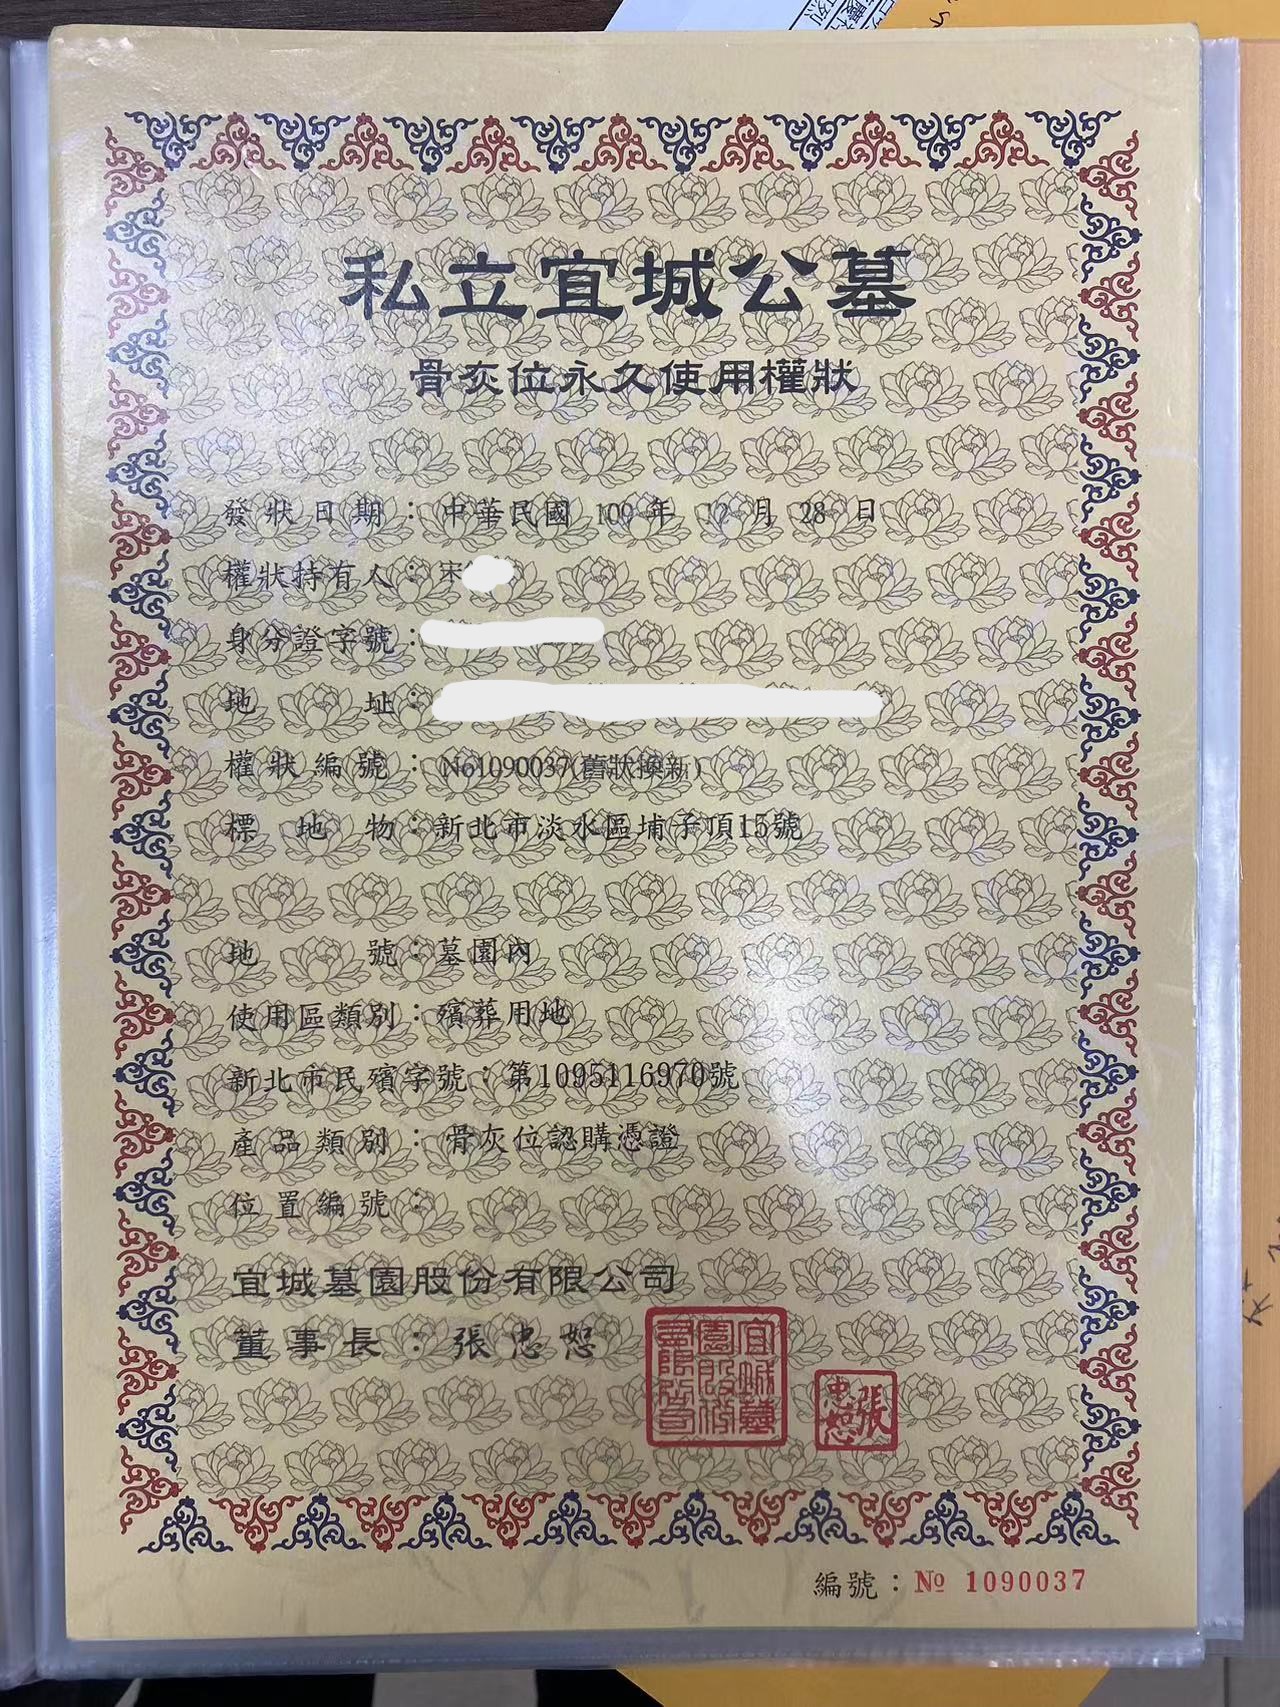 私立宜城公墓
骨灰位永久使用權狀
發狀日期：中華民國 109 年 12 月 28 日
權狀持有人：宋
身分證字號：
地址：
權狀編號：No1090037(舊狀換新)
標地物：新北市淡水區埔子頂15號
地號：墓園內
使用區類別：殯葬用地
新北市民殯字號：第1095116970號
產品類別：骨灰位認購憑證
位置編號：
宜城墓園股份有限公司
董事長：張忠恕
宜城墓園股份有限公司
張忠恕
編號：№ 1090037